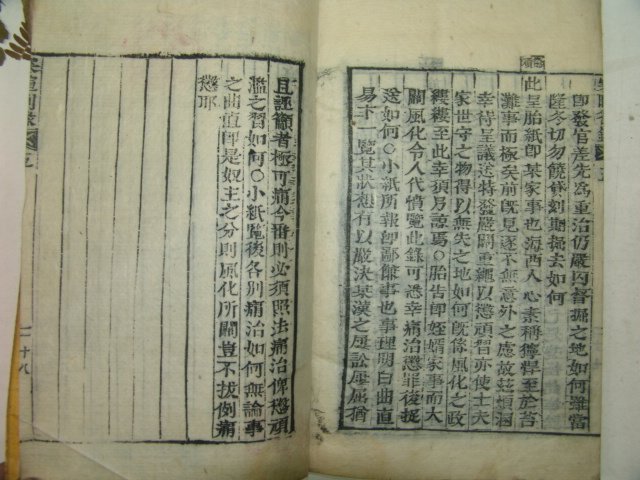 即發官差先爲重治仍嚴囚督掘之地如何雖當
隆冬切勿饒貸刻期掘去如何
此呈胎紙卽某家事也海西人心素稱獰悍至於苔
灘事而極矣前旣見逐不無意外之慮故玆煩溷
幸待呈議送特發嚴關重繩以懲頑習亦使士大
家世守之物得以無失之地如何旣係風化之政
縷縷至此幸須另諒焉○胎告卽姪婿家事而大
關風化令人代憤覽此錄可悉幸痛治懲罪後捉
送如何○小紙所報卽鄙館事也事理明白曲直
易卞一覽其狀想有以嚴決某漢之屢訟屢屈猶
且誣籲者極可痛今番則必須照法痛治俾懲頑
濫之習如何○小紙覽後各別痛治如何無論事
之曲直卽是奴主之分則風化所關豈不拔倒痛
懲耶
二十八